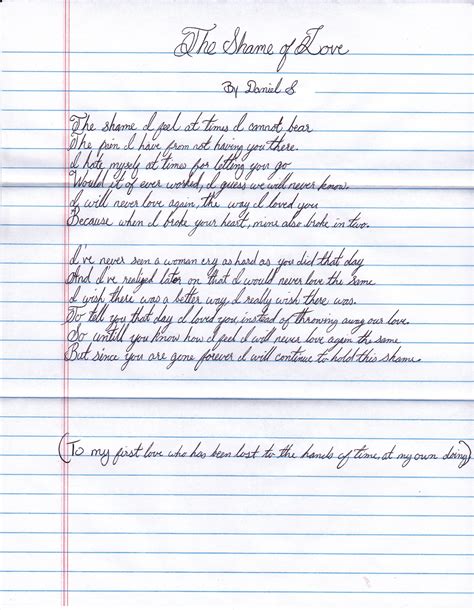 The Shame of Love
By Daniel S
The shame I feel at times I cannot bear
The pain I have from not having you there.
I hate myself at times for letting you go
Would it of ever worked, I guess we will never know.
I will never love again, the way I loved you
Because when I broke your heart, mine also broke in two.
I've never seen a woman cry as hard as you did that day
And I've realized later on that I would never love the same
I wish there was a better way I really wish there was.
To tell you that day I loved you instead of throwing away our love.
So untill you know how I feel I will never love again the same
But since you are gone forever I will continue to hold this shame.
(To my first love who has been lost to the hands of time, at my own doing)